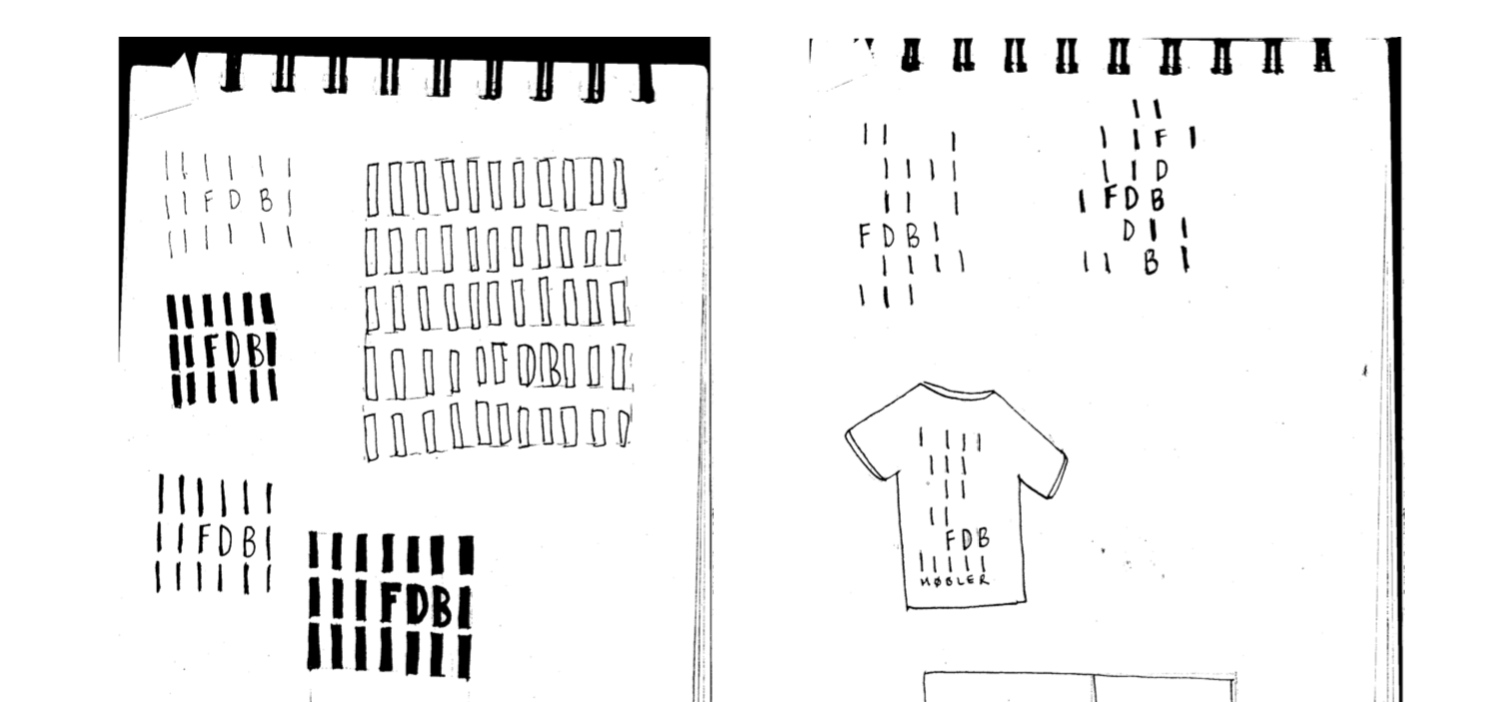 FDB
FDB
FDB
FDB
FDB
FDB
F
D
FDB
D
B
FDB
MØBLER